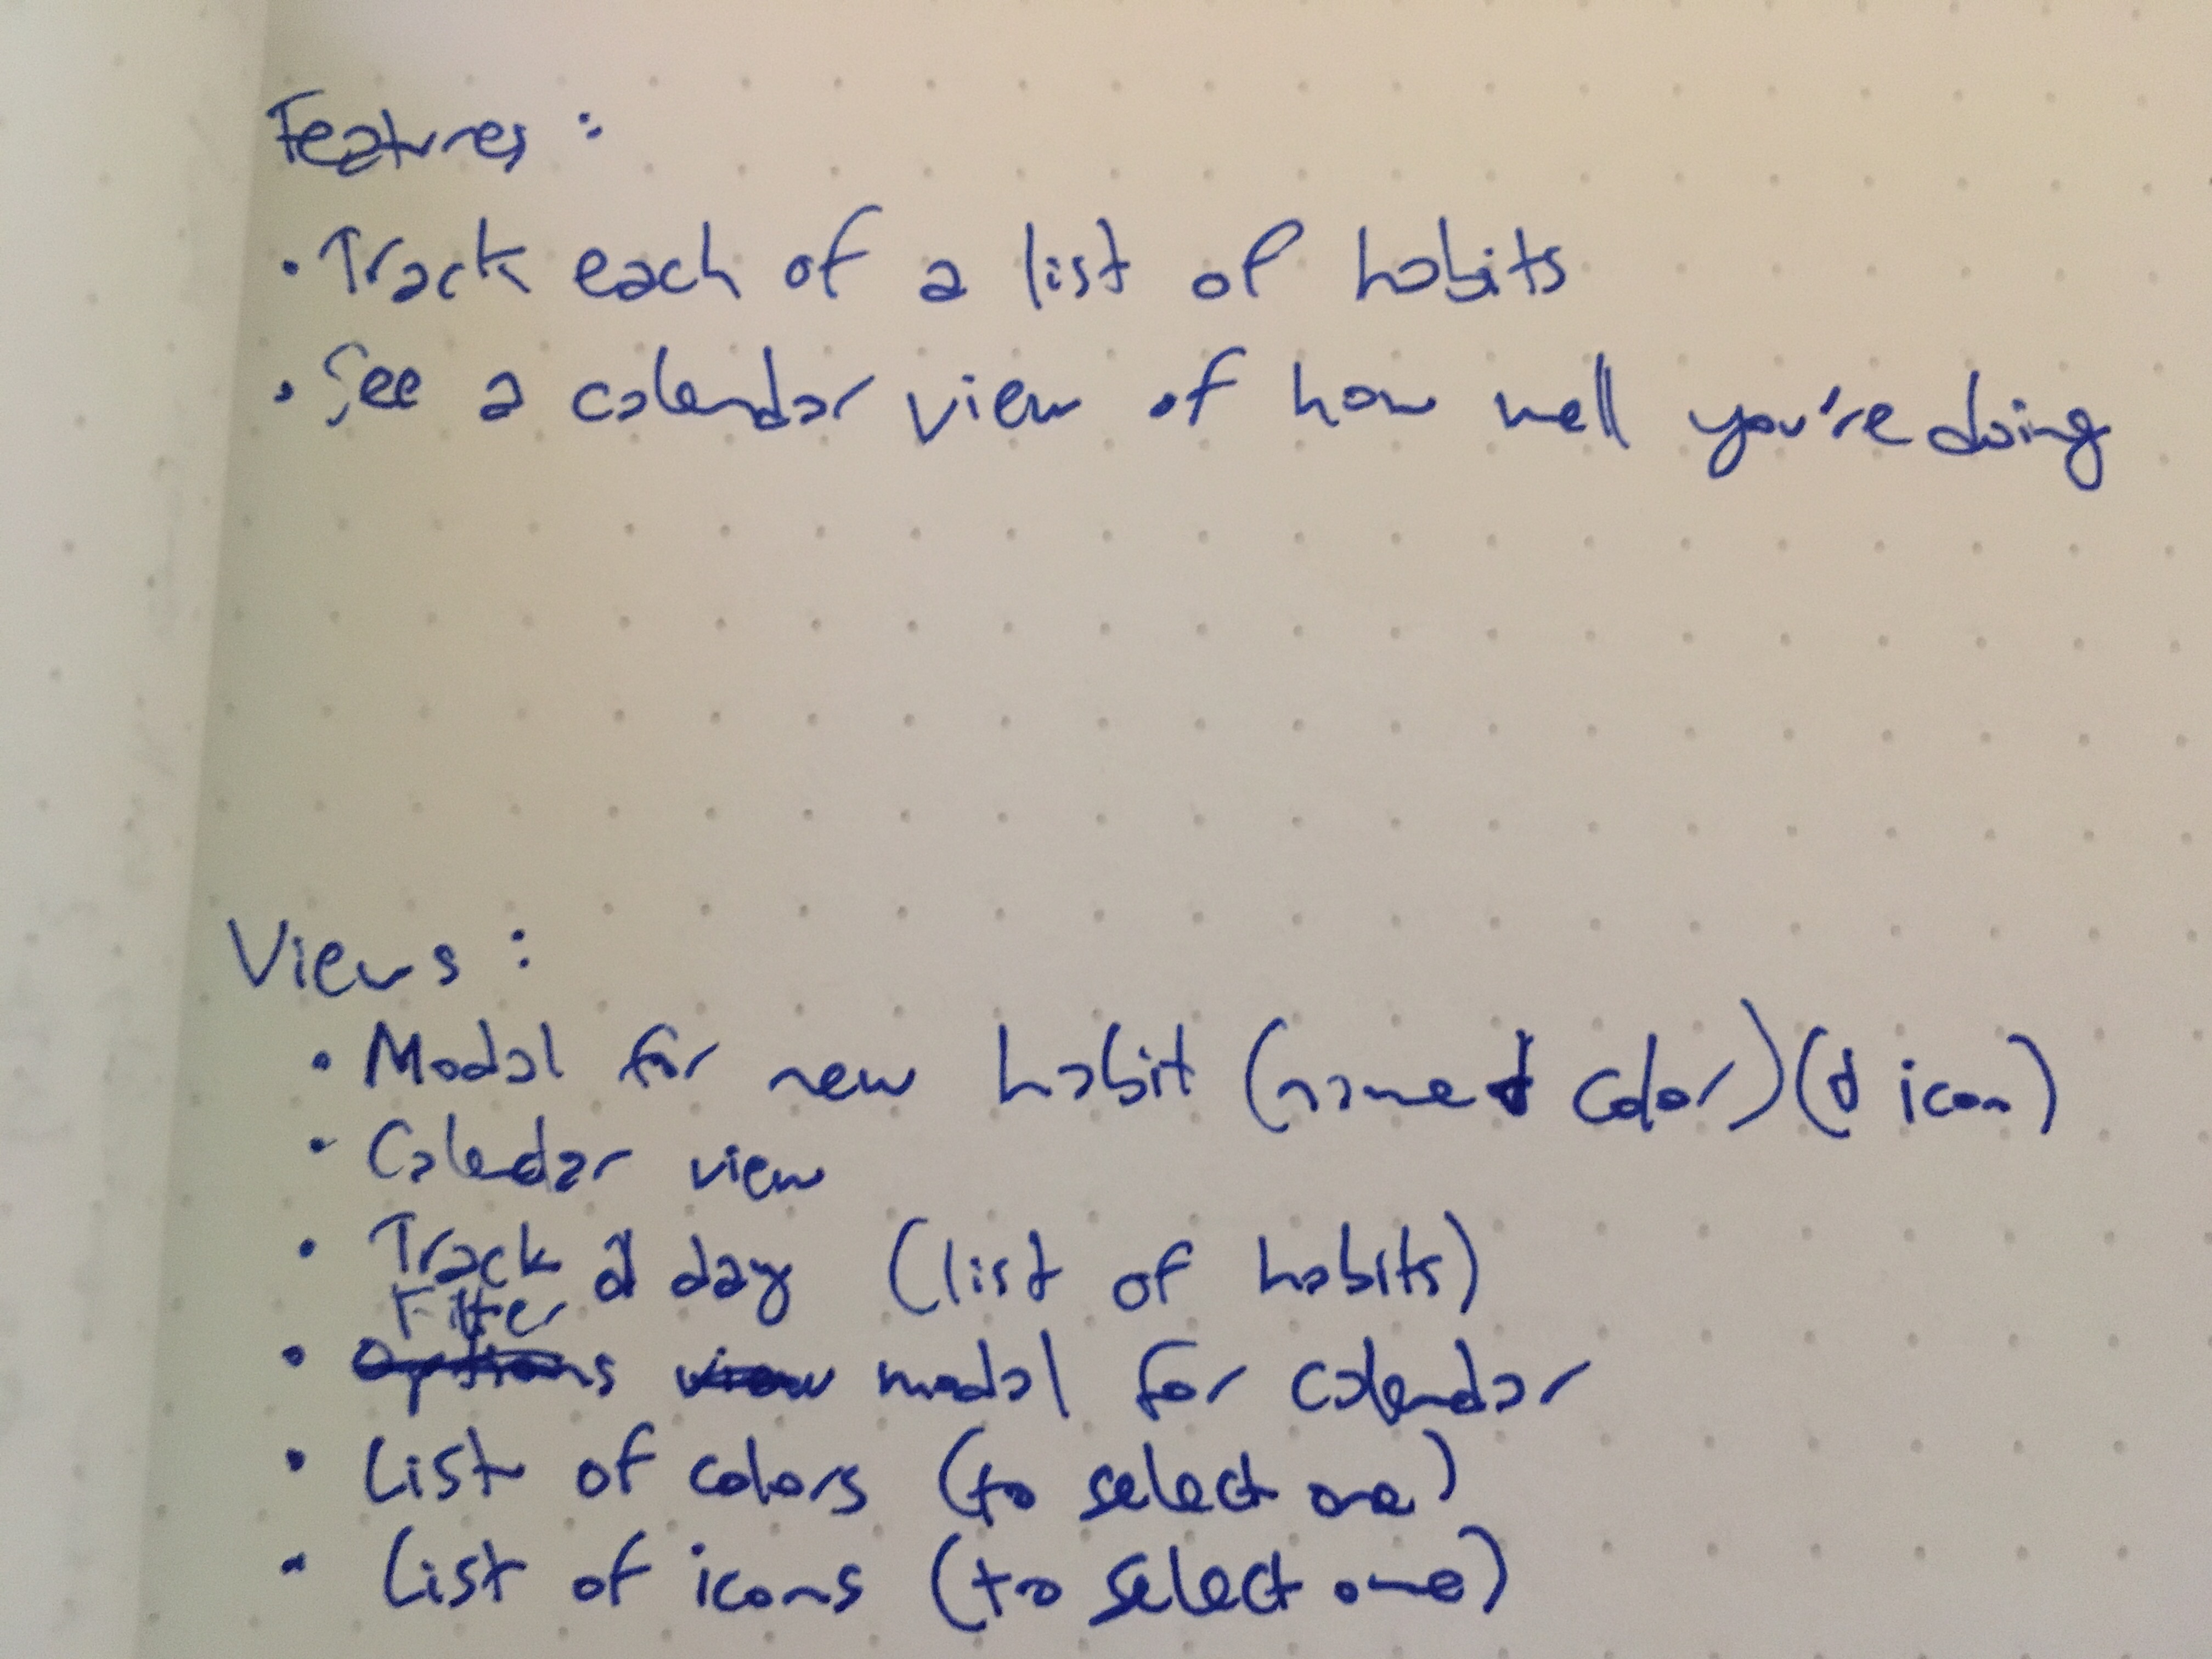 Features :
• Track each of a list of habits
• See a calendar view of how well you're doing
Views :
• Modal for new habit (name & color) (& icon)
• Calendar view
• Track a day (list of habits)
Filter
• Options view modal for calendar
• List of colors (to select one)
• List of icons (to select one)